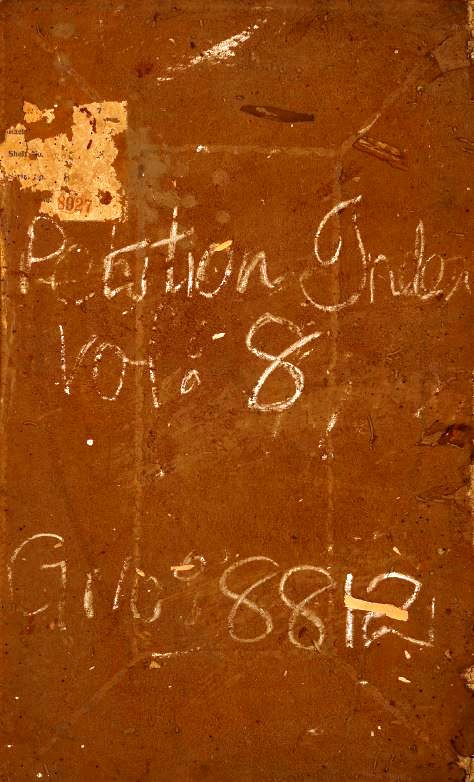 Shelf No.
8927
Petition Index
Vol: 8
G. No: 8812